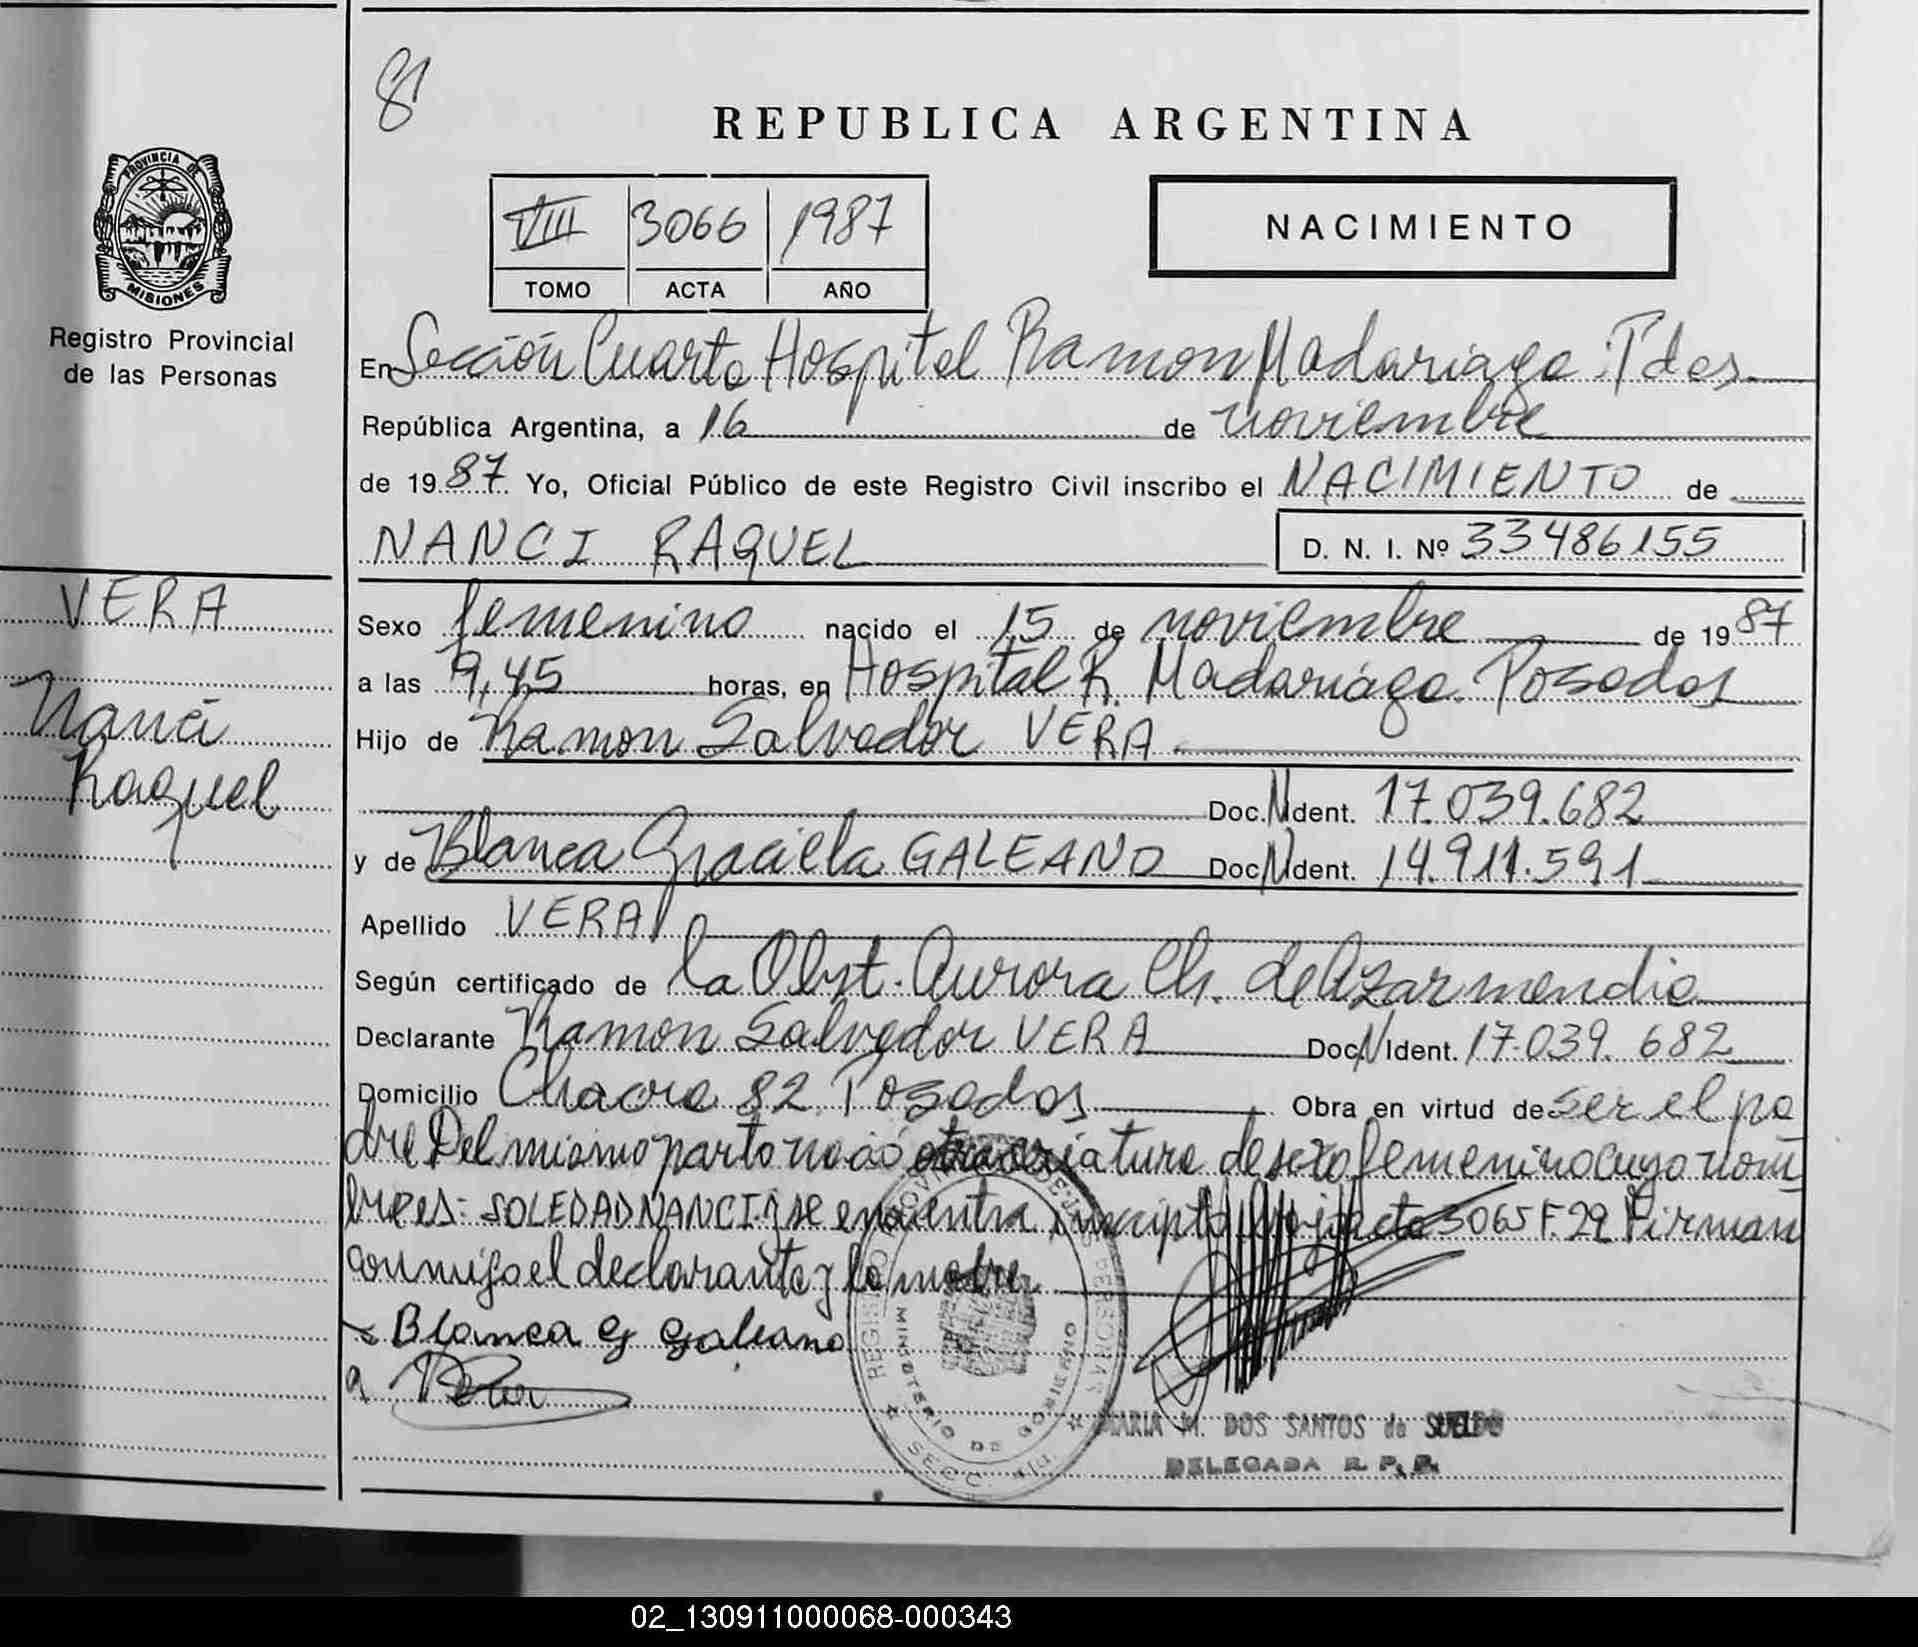 8
REPUBLICA ARGENTINA
PROVINCIA DE
MISIONES
Registro Provincial
de las Personas
VIII 3066 1987
TOMO ACTA AÑO
NACIMIENTO
En Sección Cuarta Hospital Ramon Madariaga. Pdas.
República Argentina, a 16 de noviembre
de 1987 Yo, Oficial Público de este Registro Civil inscribo el NACIMIENTO de
NANCI RAQUEL
D. N. I. Nº 33486155
VERA
Nanci
Raquel
Sexo femenino nacido el 15 de noviembre de 1987
a las 9,45 horas, en Hospital R. Madariaga. Posadas
Hijo de Ramon Salvador VERA
Doc. Nident. 17.039.682
y de Blanca Graciela GALEANO Doc Nident. 14.911.591
Apellido VERA
Según certificado de la Obst. Aurora Ch. de Azarmendia
Declarante Ramon Salvador VERA Doc. NIdent. 17.039.682
Domicilio Chacra 82. Posadas Obra en virtud de ser el pa
dre Del mismo parto nació otra criatura de sexo femenino cuyo nom
bre es: SOLEDAD NANCI y se encuentra inscripta bajo acta 3065 F. 29 Firman
conmigo el declarante y la madre
Blanca G Galeano
REGISTRO PROVINCIAL DE LAS PERSONAS
MINISTERIO DE GOBIERNO
SECC.
MARIA M. DOS SANTOS de SUELDO
DELEGADA R. P. P.
02_130911000068-000343